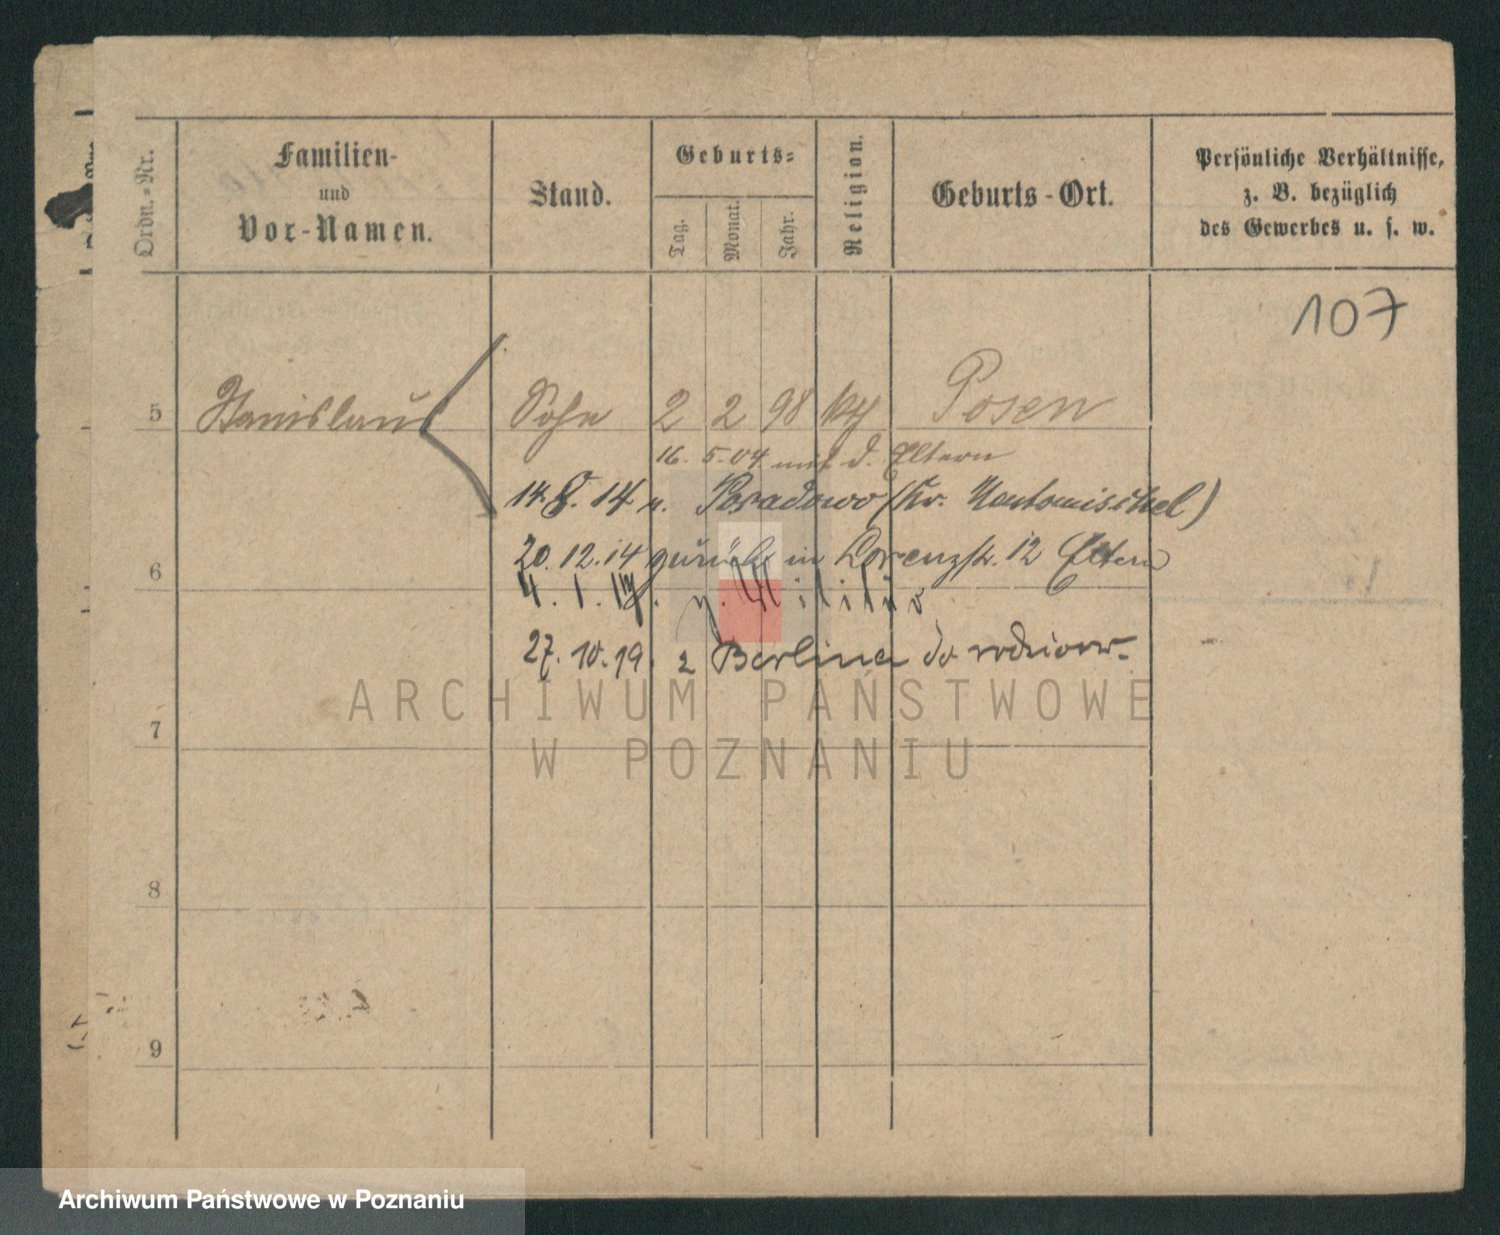 Ordn.-Nr.
Familien-
und
Vor-Namen.
Stand.
Geburts-
Tag.
Monat.
Jahr.
Religion.
Geburts-Ort.
Persönliche Verhältnisse,
z. B. bezüglich
des Gewerbes u. s. w.
107
5 Stanislaus Sohn 2 2 98 kth Posen
16. 5. 04 mit d. Eltern
14. 8. 14 n. Posadowo (Kr. Neutomischel)
20. 12. 14 zurück in Lorenzstr. 12 Eltern
6
4. 1. 17. z. Militär
27. 10. 19. z Berlina do rodziców.
ARCHIWUM PAŃSTWOWE
W POZNANIU
7
8
9
Archiwum Państwowe w Poznaniu